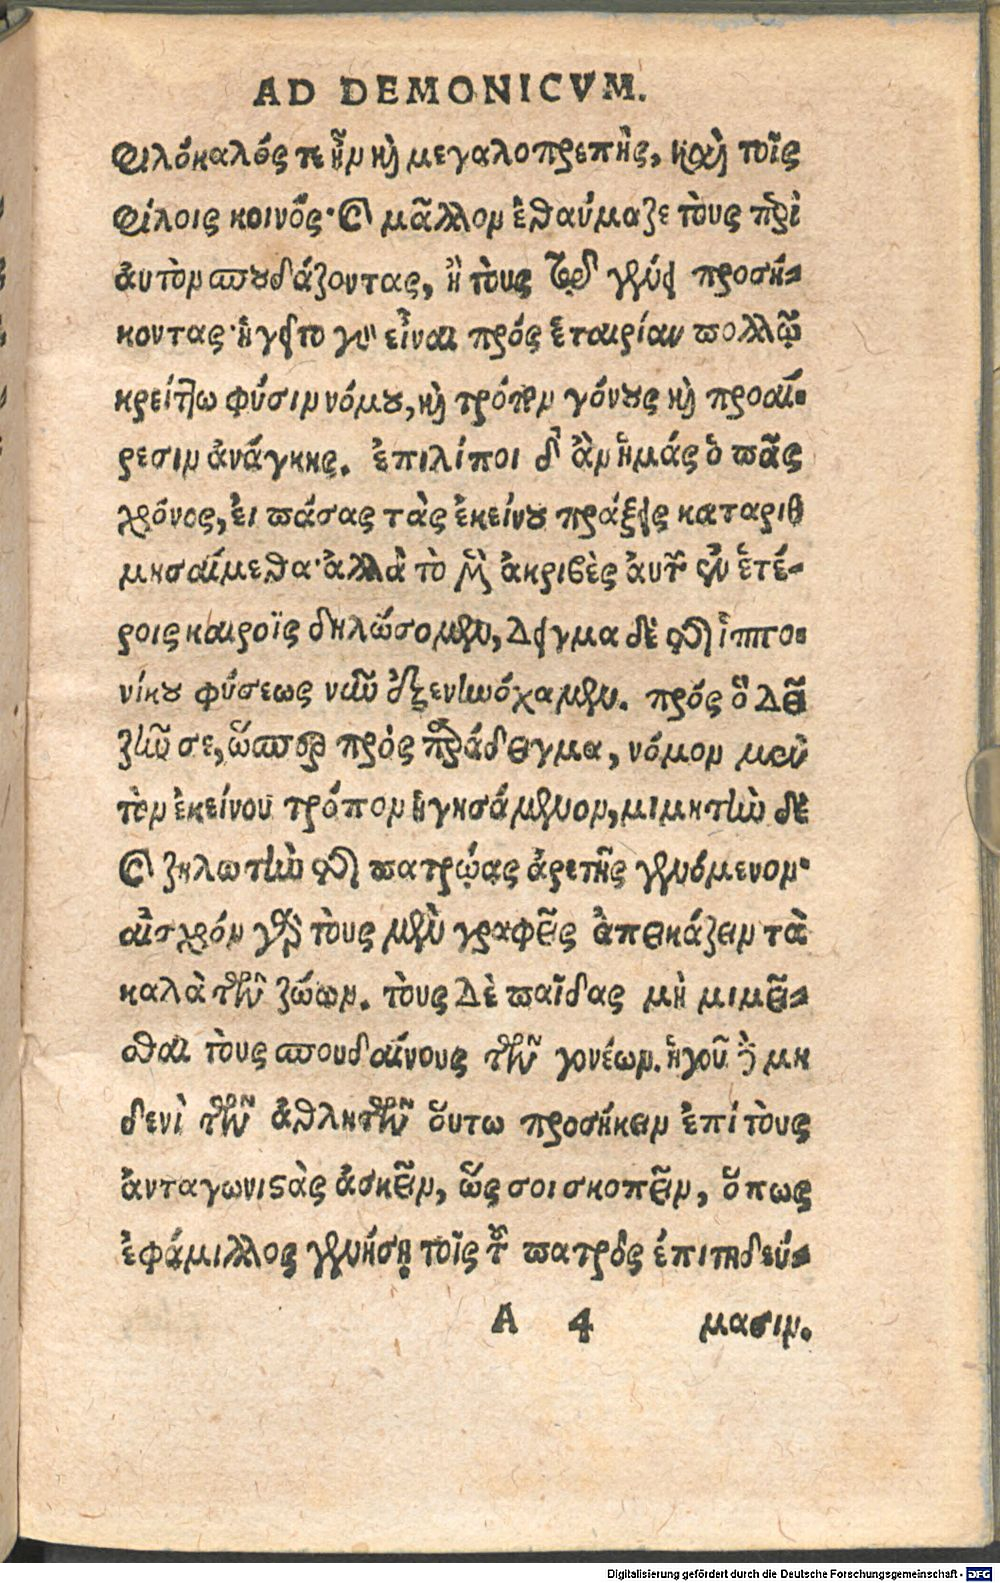 AD DEMONICVM.
Φιλόκαλός τε ἦν κὶ μεγαλοπρεπὴς, καὶ τοῖς
φίλοις κοινός· καὶ μᾶλλον ἐθαύμαζε τοὺς περὶ
ἀυτὸν σπουδάζοντας, ἢ τοὺς τῷ γένει προσή-
κοντας· ἡγεῖτο γὰρ εἶναι πρός ἑταιρίαν πολλῷ
κρείττω φύσιν νόμου, κὶ τρόπον γένους κὶ προαί-
ρεσιν ἀνάγκης. ἐπιλίποι δ' ἂν ἡμάς ὁ πᾶς
χρόνος, ἐι πάσας τὰς ἐκείνου πράξεις καταριθ
μησαίμεθα· ἀλλὰ τὸ μὲν ἀκριβὲς ἀυτῶν ἐν ἑτέ-
ροις καιροῖς δηλώσομεν, δεῖγμα δὲ τῆς ἱππο-
νίκου φύσεως νῦν ἐξενηνόχαμεν. πρός ὃ δεῖ
ζῆν σε, ὥσπερ πρὸς παράδειγμα, νόμον μὲν
τὸν ἐκείνου τρόπον ἡγησάμενον, μιμητὴν δὲ
καὶ ζηλωτὴν τῆς πατρῴας ἀρετῆς γενόμενον·
αἰσχρόν γὰρ τοὺς μὲν γραφεῖς ἀπεικάζειν τὰ
καλὰ τῶν ζώων. τοὺς δὲ παῖδας μὴ μιμεῖ-
σθαι τοὺς σπουδαίνους τῶν γονέων. ἡγοῦ δὲ μη
δενὶ τῶν ἀθλητῶν ὅυτω προσήκειν ἐπί τοὺς
ἀνταγωνιστὰς ἀσκεῖν, ὥς σοι σκοπεῖν, ὅπως
ἐφάμιλλος γενήσῃ τοῖς τοῦ πατρός ἐπιτηδεύ-
A 4 μασιν.
Digitalisierung gefördert durch die Deutsche Forschungsgemeinschaft - DFG